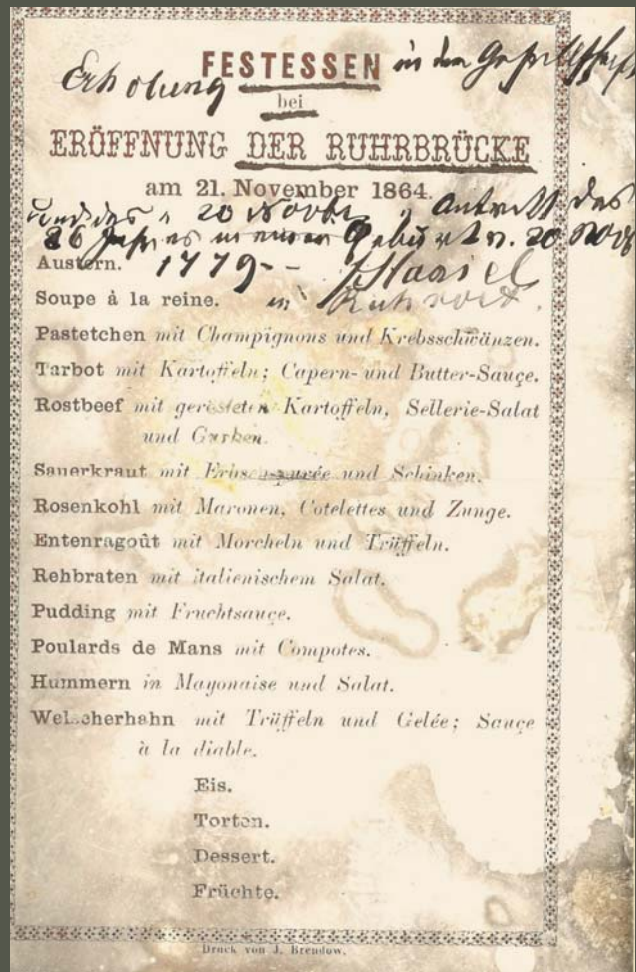 FESTESSEN in der Gesellschaft
Erholung
bei
ERÖFFNUNG DER RUHRBRÜCKE
am 21. November 1864.
und des 20 Antritt des
86 Jahres meiner Geburt v. 20
Austern. 1779 --
Soupe à la reine. in Ruhrort.
Pastetchen mit Champignons und Krebsschwänzen.
Tarbot mit Kartoffeln; Capern- und Butter-Sauçe.
Rostbeef mit gerösteten Kartoffeln, Sellerie-Salat
und Gurken.
Sauerkraut mit Erbsen-purée und Schinken.
Rosenkohl mit Maronen, Cotelettes und Zunge.
Entenragoût mit Morcheln und Trüffeln.
Rehbraten mit italienischem Salat.
Pudding mit Fruchtsauçe.
Poulards de Mans mit Compotes.
Hummern in Mayonaise und Salat.
Welscherhahn mit Trüffeln und Gelée; Sauçe
à la diable.
Eis.
Torten.
Dessert.
Früchte.
Druck von J. Brendow.